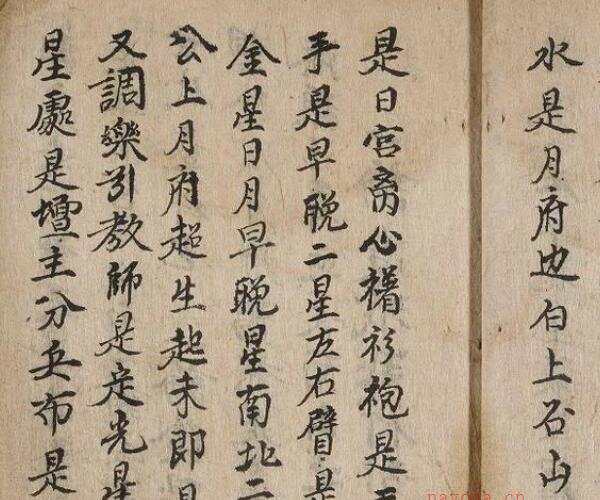 水是月府边白上谷山
是日宫离心褶衫袍是
手是早晚二星左右臂是
金星日月早晚星南北二
公上月府超生起未即是
又調樂引教師是定光星
星處是壇主分兵布是